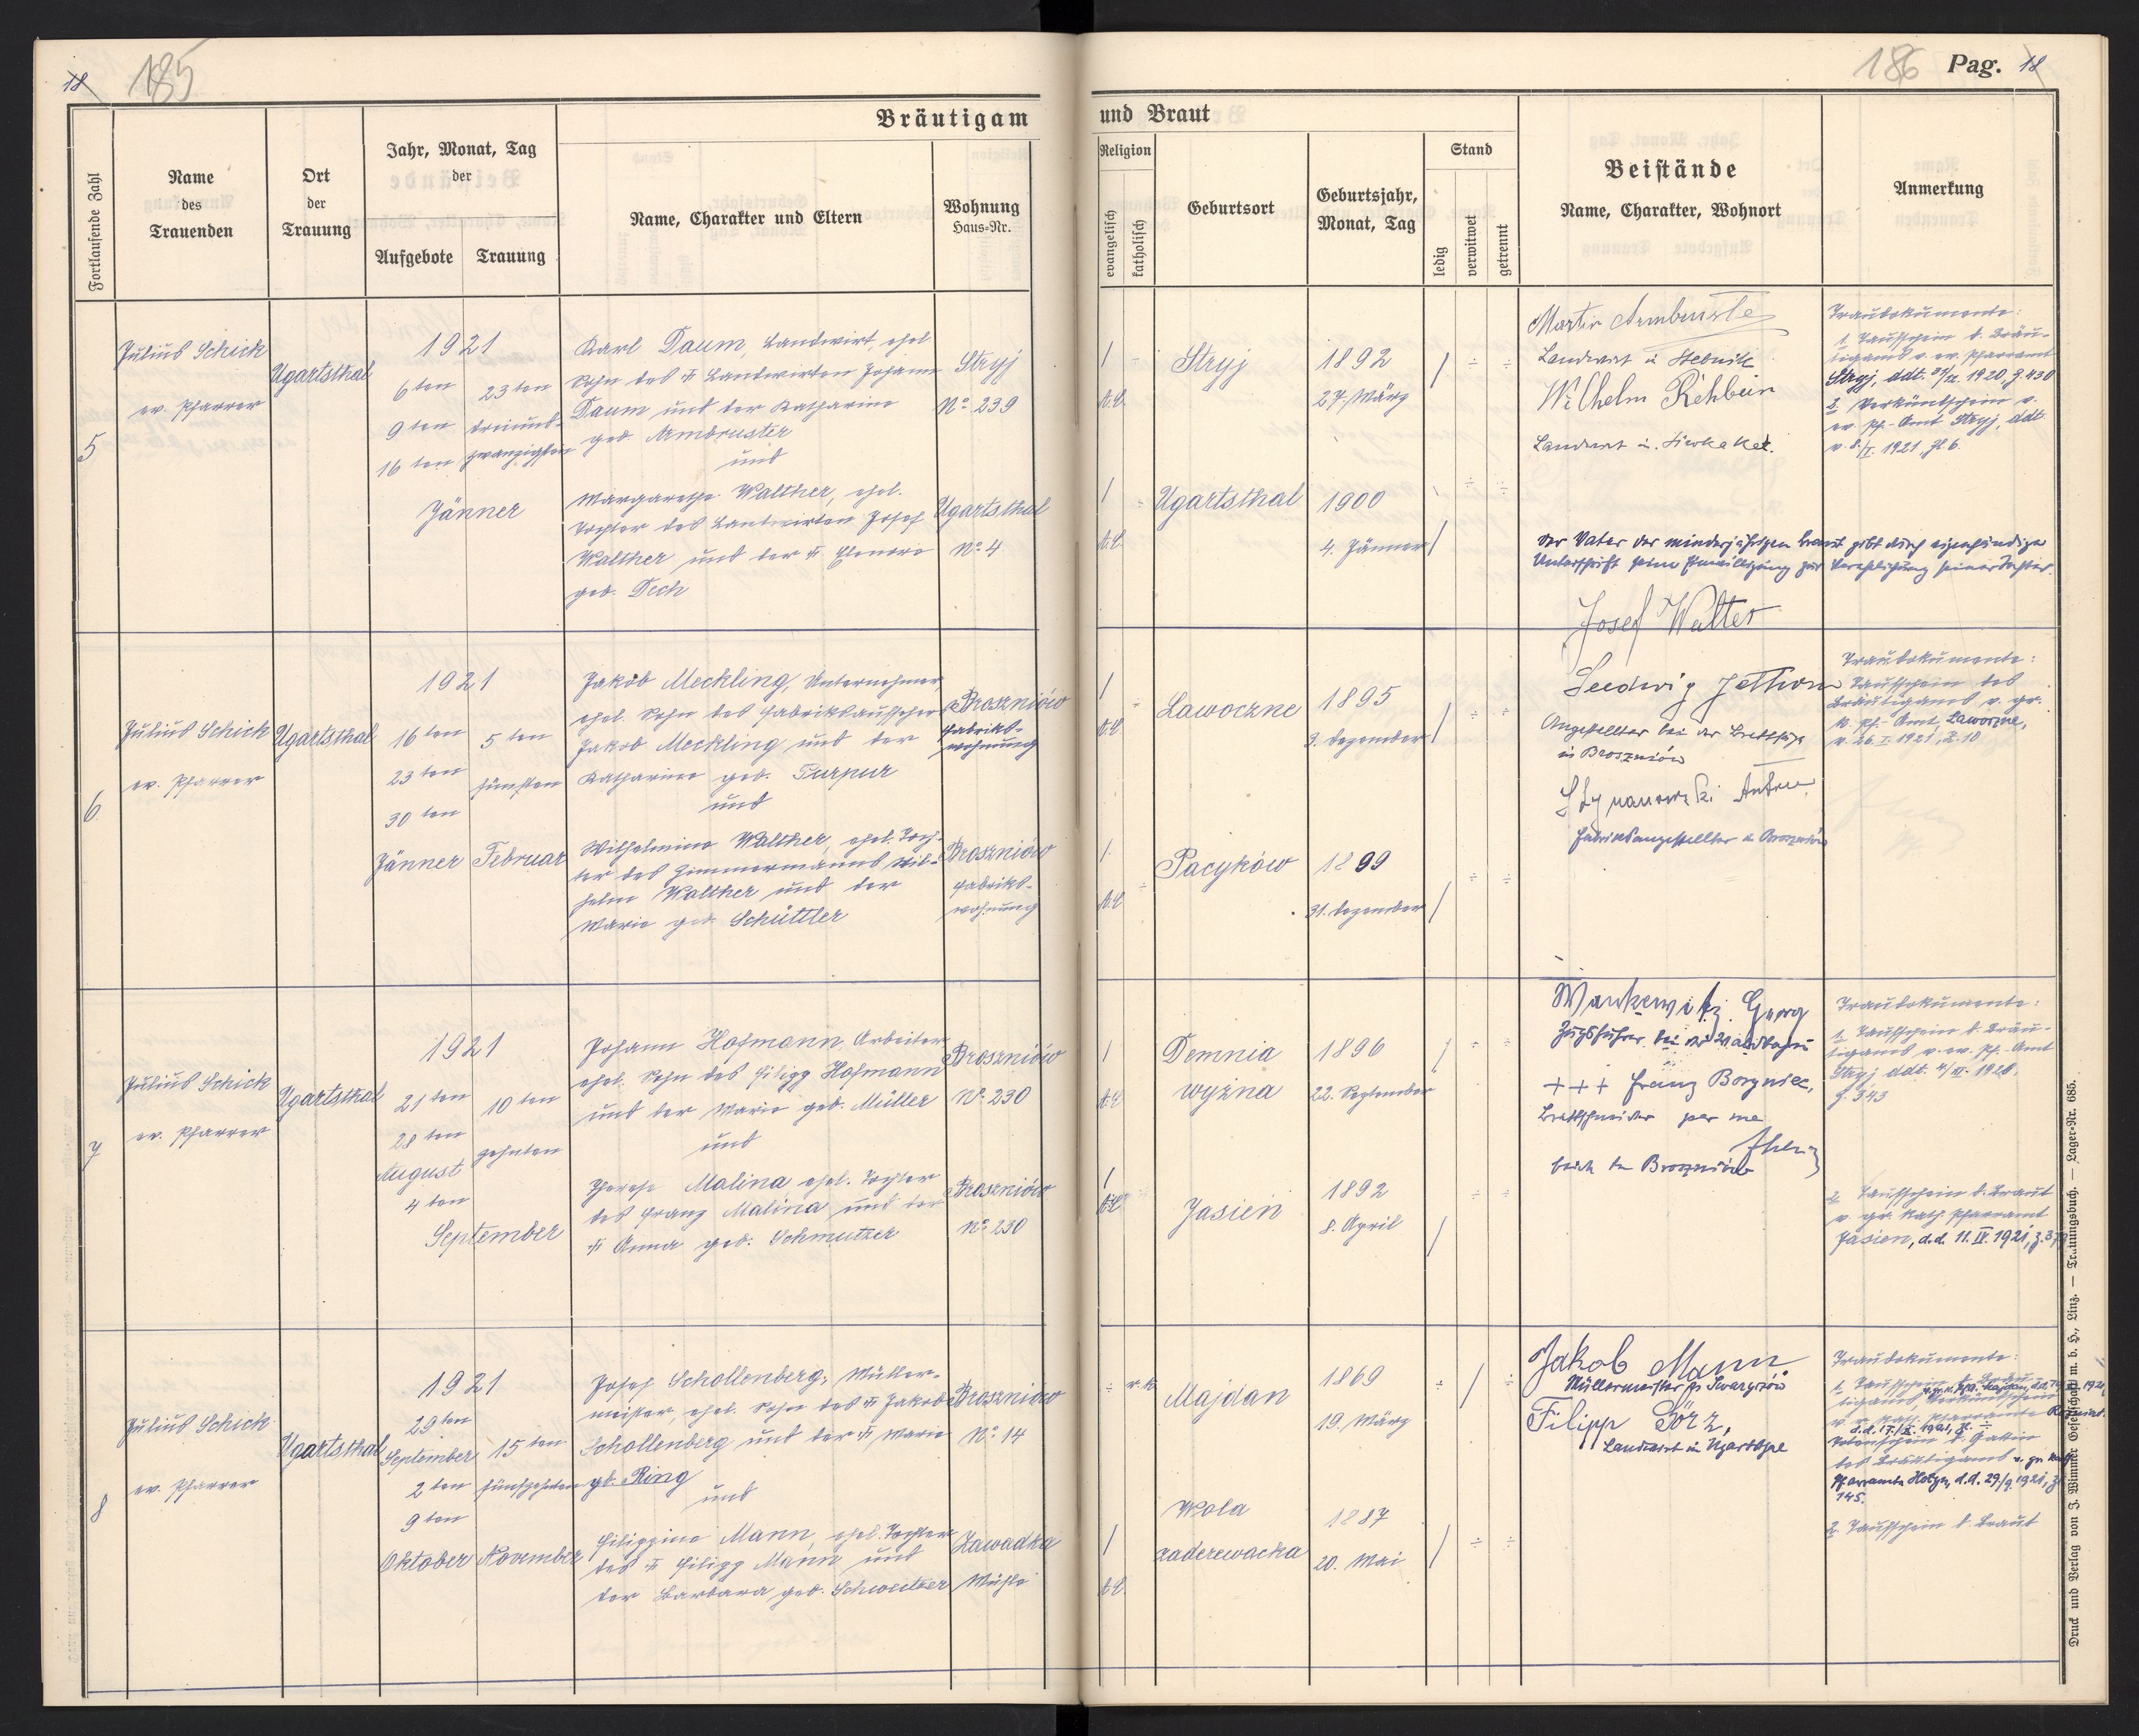 18
185
Bräutigam
Fortlaufende Zahl
Name
des
Trauenden
Ort
der
Trauung
Jahr, Monat, Tag
der
Aufgebote
Trauung
Name, Charakter und Eltern
Wohnung
Haus-Nr.
5
Julius Schick
ev. Pfarrer
Ugartsthal
1921
6ten
9ten
16ten
23ten
dreiund-
zwanzigsten
Jänner
Karl Daum, Landwirt, ehel
Sohn des Landwirten Johann
Daum und der Katharina
geb. Armbruster
und
Margarethe Walther, ehel.
Tochter des Landwirten Josef
Walther und der Eleonore
geb. Dech
Stryj
No. 239
Ugartsthal
No. 4
6
Julius Schick
ev. Pfarrer
Ugartsthal
1921
16ten
23ten
30ten
Jänner
5ten
fünften
Februar
Jakob Meckling, Unternehmer,
ehel. Sohn des Fabriksaufsehers
Jakob Meckling und der
Katharina geb. Purpur
und
Wilhelmine Walther, ehel. Toch-
ter des Zimmermanns Wil-
helm Walther und der
Marie geb. Schüttler
Broszniów
Fabriks-
wohnung
Broszniów
Fabriks-
wohnung
7
Julius Schick
ev. Pfarrer
Ugartsthal
1921
21ten
28ten
August
4ten
September
10ten
zehnten
Johann Hofmann Arbeiter
ehel. Sohn des Filipp Hofmann
und der Marie geb. Müller
und
Therese Malina ehel. Tochter
des Franz Malina und der
Anna geb. Schmutzer
Broszniów
No. 230
Broszniów
No. 230
8
Julius Schick
ev. Pfarrer
Ugartsthal
1921
29ten
September
2ten
9ten
Oktober
15ten
fünfzehnten
November
Josef Schollenberg, Müller-
meister, ehel. Sohn des Jakob
Schollenberg und der Marie
geb. Ring
und
Filippine Mann, ehel. Tochter
des Filipp Mann und
der Barbara geb. Schweitzer
Broszniów
No. 14
Zawadka
Mühle
186 Pag. 18
und Braut
Religion
evangelisch
katholisch
Geburtsort
Geburtsjahr,
Monat, Tag
Stand
ledig
verwitwet
getrennt
Beistände
Name, Charakter, Wohnort
Anmerkung
A.C.
Stryj
1892
27. März
A.C.
Ugartsthal
1900
4. Jänner
Martin Armbruster
Landwirt in Stebnik
Wilhelm Rehbein
Landwirt in
Der Vater der minderjährigen Braut gibt durch eigenhändige
Unterschrift seine Einwilligung zur Verehelichung seiner Tochter.
Josef Walter
Traudokumente:
1. Taufschein d. Bräu-
tigams v. ev. Pfarramt
Stryj, ddt. 1920, Z 430
2. Verkündschein v.
ev. Pf.-Amt Stryj, ddt
v. 8./I. 1921, Zl 6.
A.C.
Lawoczne
1895
3. Dezember
A.C.
Pacyków
1899
31. Dezember
Angestellter bei der Brettsäge
in Broszniów
Fabriksangestellter in Broszniów
Traudokumente:
Taufschein des
Bräutigams v. gr.
k. Pf.-Amt, Lawoczne,
v. 26. I. 1921, Z. 10
A.C.
Demnia
wyżna
1896
22. September
A.C.
Jasień
1892
8. April
Georg
Zugsführer bei der Waldbahn
+++ Franz
Brettschneider per me
beide in Broszniów
Traudokumente:
1. Taufschein d. Bräu-
tigams v. ev. Pf.-Amt
Stryj ddt.
Z. 343
2. Taufschein d. Braut
v. gr. kath. Pfarramt
Jasień, d.d. 11. IV. 1921,
r. k.
Majdan
1869
19. März
A.C.
Wola
zaderewacka
1887
20. Mai
Jakob Mann
Müllermeister
Filipp Görz,
Landwirt in Ugartsthal
Traudokumente:
1. Taufschein d. Bräu-
tigams, Verkündschein
d. Gattin
des Bräutigams v. gr. kath.
Pfarramte d.d. 29./9. 1921, Z
145.
2. Taufschein d. Braut
Druck und Verlag von J. Wimmer Gesellschaft m. b. H., Linz. — Trauungsbuch. — Lager-Nr. 685.